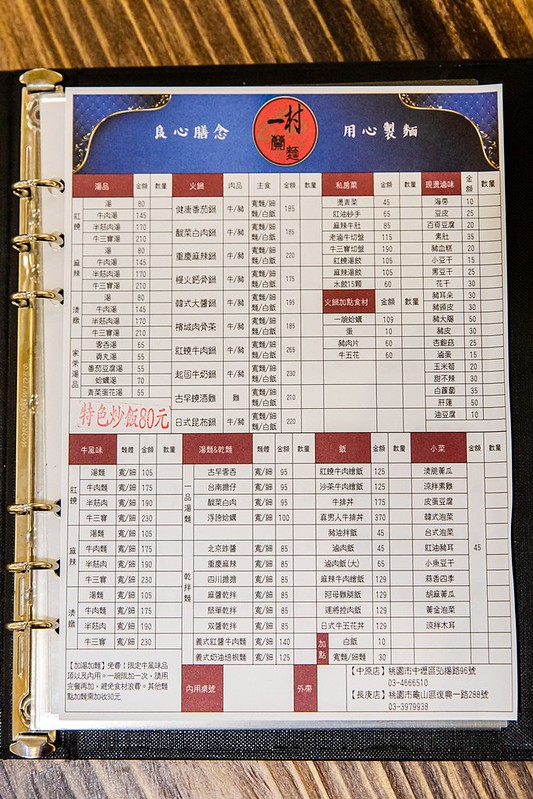 良心膳念
一村
製麵
用心製麵
湯品 金額 數量 火鍋 肉品 主食 金額 數量 私房菜 金額 數量 現燙滷味 金額 數量
紅燒 湯 80
牛肉湯 145
半筋肉湯 170
牛三寶湯 210
麻辣 湯 80
牛肉湯 145
半筋肉湯 170
牛三寶湯 210
清燉 湯 80
牛肉湯 145
半筋肉湯 170
牛三寶湯 210
家常湯品 香湯 65
貢丸湯 55
番茄豆腐湯 55
蛤蠣湯 70
青菜蛋花湯 55
特色炒飯80元
健康番茄鍋 牛/豬 寬麵/細麵/白飯 185
酸菜白肉鍋 牛/豬 寬麵/細麵/白飯 185
重慶麻辣鍋 牛/豬 寬麵/細麵/白飯 220
椪火鈣骨鍋 牛/豬 寬麵/細麵/白飯 175
韓式大醬鍋 牛/豬 寬麵/細麵/白飯 195
檳城肉骨茶 牛/豬 寬麵/細麵/白飯 185
紅燒牛肉鍋 牛/豬 寬麵/細麵/白飯 265
起司牛奶鍋 牛/豬 寬麵/細麵/白飯 230
古早燒酒雞 雞 寬麵/細麵/白飯 210
日式昆布鍋 牛/豬 寬麵/細麵/白飯 220
燙青菜 45
紅油抄手 65
麻辣牛肚 85
老滷牛切盤 115
牛三寶切盤 190
紅燒湯餃 105
麻辣湯餃 105
水餃15顆 60
火鍋加點食材 金額 數量
一碗蛤蠣 109
蛋 10
豬肉片 60
牛五花 60
海帶 10
豆皮 25
百頁豆腐 20
素肚 35
豬血糕 20
小豆干 15
黑豆干 25
花干 30
豬耳朵 30
豬頭皮 30
豬大腸 50
豬皮 30
杏鮑菇 25
滷蛋 15
玉米筍 20
甜不辣 30
白蘿蔔 35
肝蓮 50
油豆腐 10
牛風味 麵體 金額 數量 湯麵&乾麵 麵體 金額 數量 飯 金額 數量 小菜 金額 數量
紅燒 湯麵 寬/細 105
牛肉麵 寬/細 175
半筋肉 寬/細 190
牛三寶 寬/細 230
麻辣 湯麵 寬/細 105
牛肉麵 寬/細 175
半筋肉 寬/細 190
牛三寶 寬/細 230
清燉 湯麵 寬/細 105
牛肉麵 寬/細 175
半筋肉 寬/細 190
牛三寶 寬/細 230
一品湯麵 古早香 寬/細 95
台南擔仔 寬/細 95
酸菜白肉 寬/細 95
浮誇蛤蠣 寬/細 100
乾拌麵 北京炸醬 寬/細 85
重慶麻辣 寬/細 85
四川擔擔 寬/細 85
麻醬乾拌 寬/細 85
簡單乾拌 寬/細 85
雙醬乾拌 寬/細 85
義式紅醬牛肉麵 寬/細 140
義式奶油培根麵 寬/細 125
紅燒牛肉燴飯 125
沙茶牛肉燴飯 125
牛排丼 175
真男人牛排丼 370
豬油拌飯 45
滷肉飯 45
滷肉飯(大) 65
麻辣牛肉燴飯 129
阿母雞腿飯 129
運將控肉飯 129
日式牛五花丼 129
加點 白飯 10
寬麵/細麵 30
清脆黃瓜
涼拌素雞
皮蛋豆腐
韓式泡菜
台式泡菜
紅油豬耳 45
小魚豆干
蒜香四季
胡麻黃瓜
黃金泡菜
涼拌木耳
【加湯加麵】免費！限定牛風味品
項以及內用。一碗限加一次，請用
完餐再加，避免食材浪費。其他麵
點加麵需加收30元
內用桌號
外帶
【中原店】桃園市中壢區弘揚路96號
03-4666510
【長庚店】桃園市龜山區復興一路288號
03-3979938